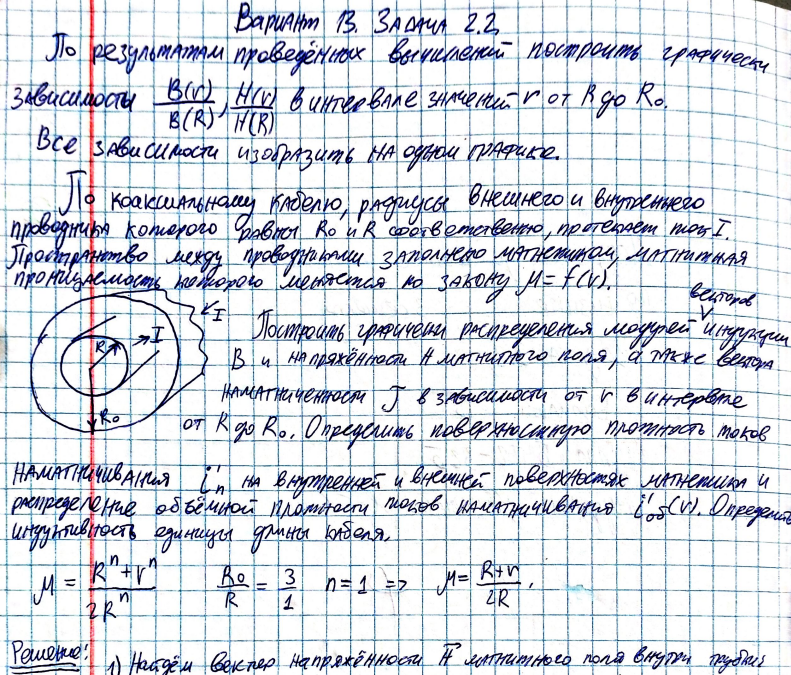 Вариант 13. Задача 2.2.
По результатам проведённых вычислений построить графически
зависимости B(r)/B(R), H(r)/H(R) в интервале значений r от R до R₀.
Все зависимости изобразить на одном графике.
По коаксиальному кабелю, радиусы внешнего и внутреннего
проводника которого равны R₀ и R соответственно, протекает ток I.
Пространство между проводниками заполнено магнетиком, магнитная
проницаемость которого меняется по закону μ = f(r).
I
R
I
R₀
векторов
Построить графически распределения модулей индукции
B и напряжённости H магнитного поля, а также вектора
намагниченности J в зависимости от r в интервале
от R до R₀. Определить поверхностную плотность токов
намагничивания i'ₙ на внутренней и внешней поверхностях магнетика и
распределение объёмной плотности токов намагничивания i'об(r). Определить
индуктивность единицы длины кабеля.
μ = (Rⁿ + rⁿ)/(2Rⁿ) R₀/R = 3/1 n = 1 => μ = (R + r)/(2R).
Решение: 1) Найдём вектор напряжённости H⃗ магнитного поля внутри трубки: